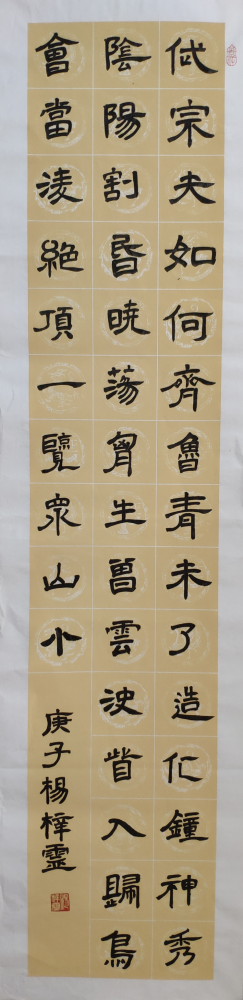 岱宗夫如何齊魯青未了造化鐘神秀
陰陽割昬曉蕩胷生曽雲決眥入歸鳥
會當淩絕頂一覽眾山小
庚子楊梓靈